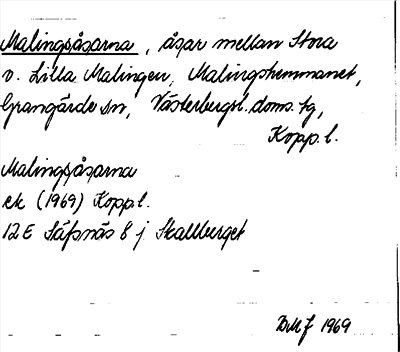 Malingsåsarna, åsar mellan Stora
o. Lilla Malingen, Malingshemmanet,
Grangärde sn, Västerbergsl. doms. tg,
Kopp. l.
Malingsåsarna
ek (1969) Kopp l.
12E Säfsnäs 8 j Skallberget
BMJ 1969